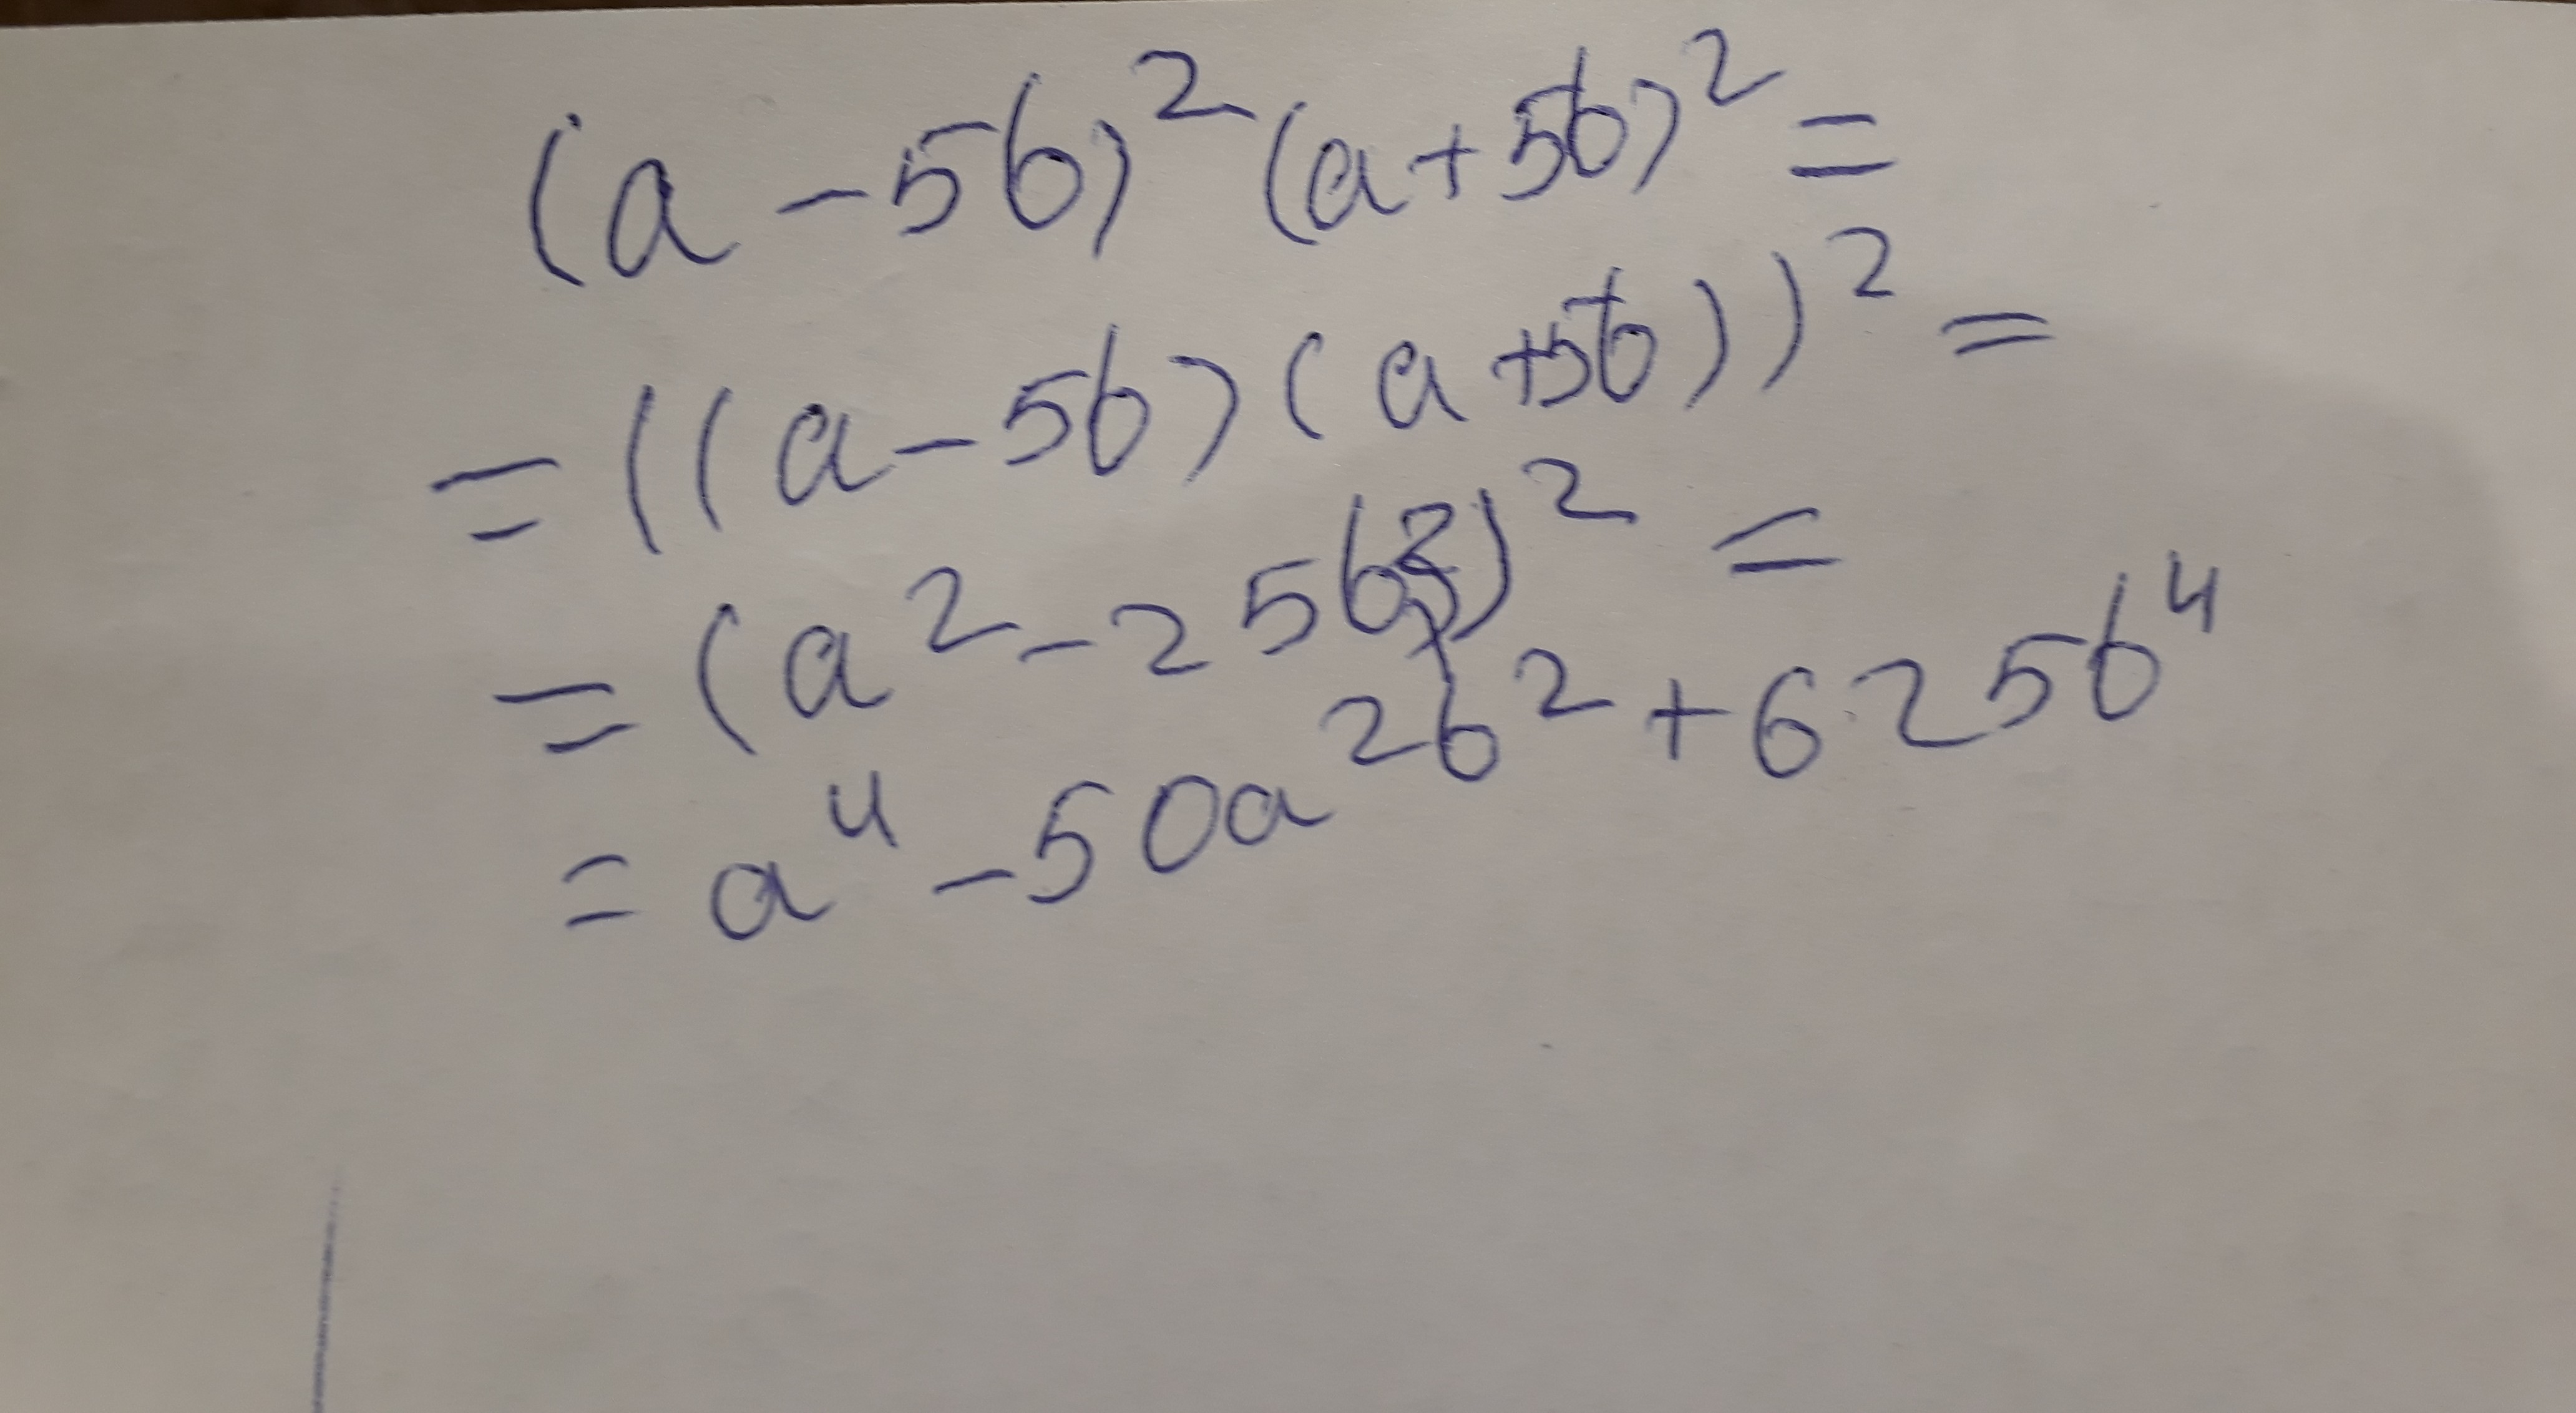 (a-5b)²(a+5b)²=
=((a-5b)(a+5b))²=
=(a²-25b²)²=
=a⁴-50a²b²+625b⁴